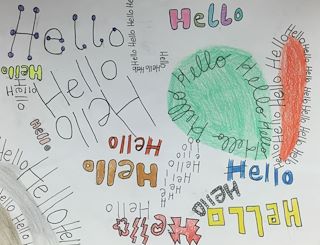 Hello
Hello
Hello Hello Hello
Hello Hello Hello
Hello
Hello
Hello
Hello
Hello
Hello
Hello
Hello Hello Hello Hello
Hello Hello Hello
Hello Hello Hello
Hello
Hello
Hello
Hello
Hello
Hello Hello